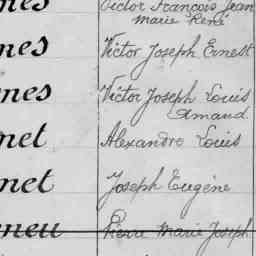 nes Victor François Jean
Marie René
nes Victor Joseph Ernest
nes Victor Joseph Louis
Amand
net Alexandre Louis
net Joseph Eugène
neu Pierre Marie Joseph